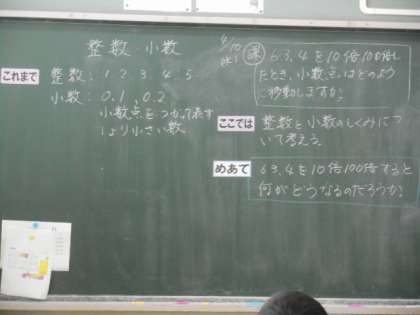 整数 小数
これまで
整数：1 2 3 4 5
小数：0.1，0.2
小数点をつかって表す
1より小さい数
4/10
課
63.4を10倍100倍し
たとき、小数点はどのよう
に移動しますか。
ここでは
整数と小数のしくみに
ついて考えよう。
めあて
63.4を10倍100倍すると
何がどうなるのだろうか？